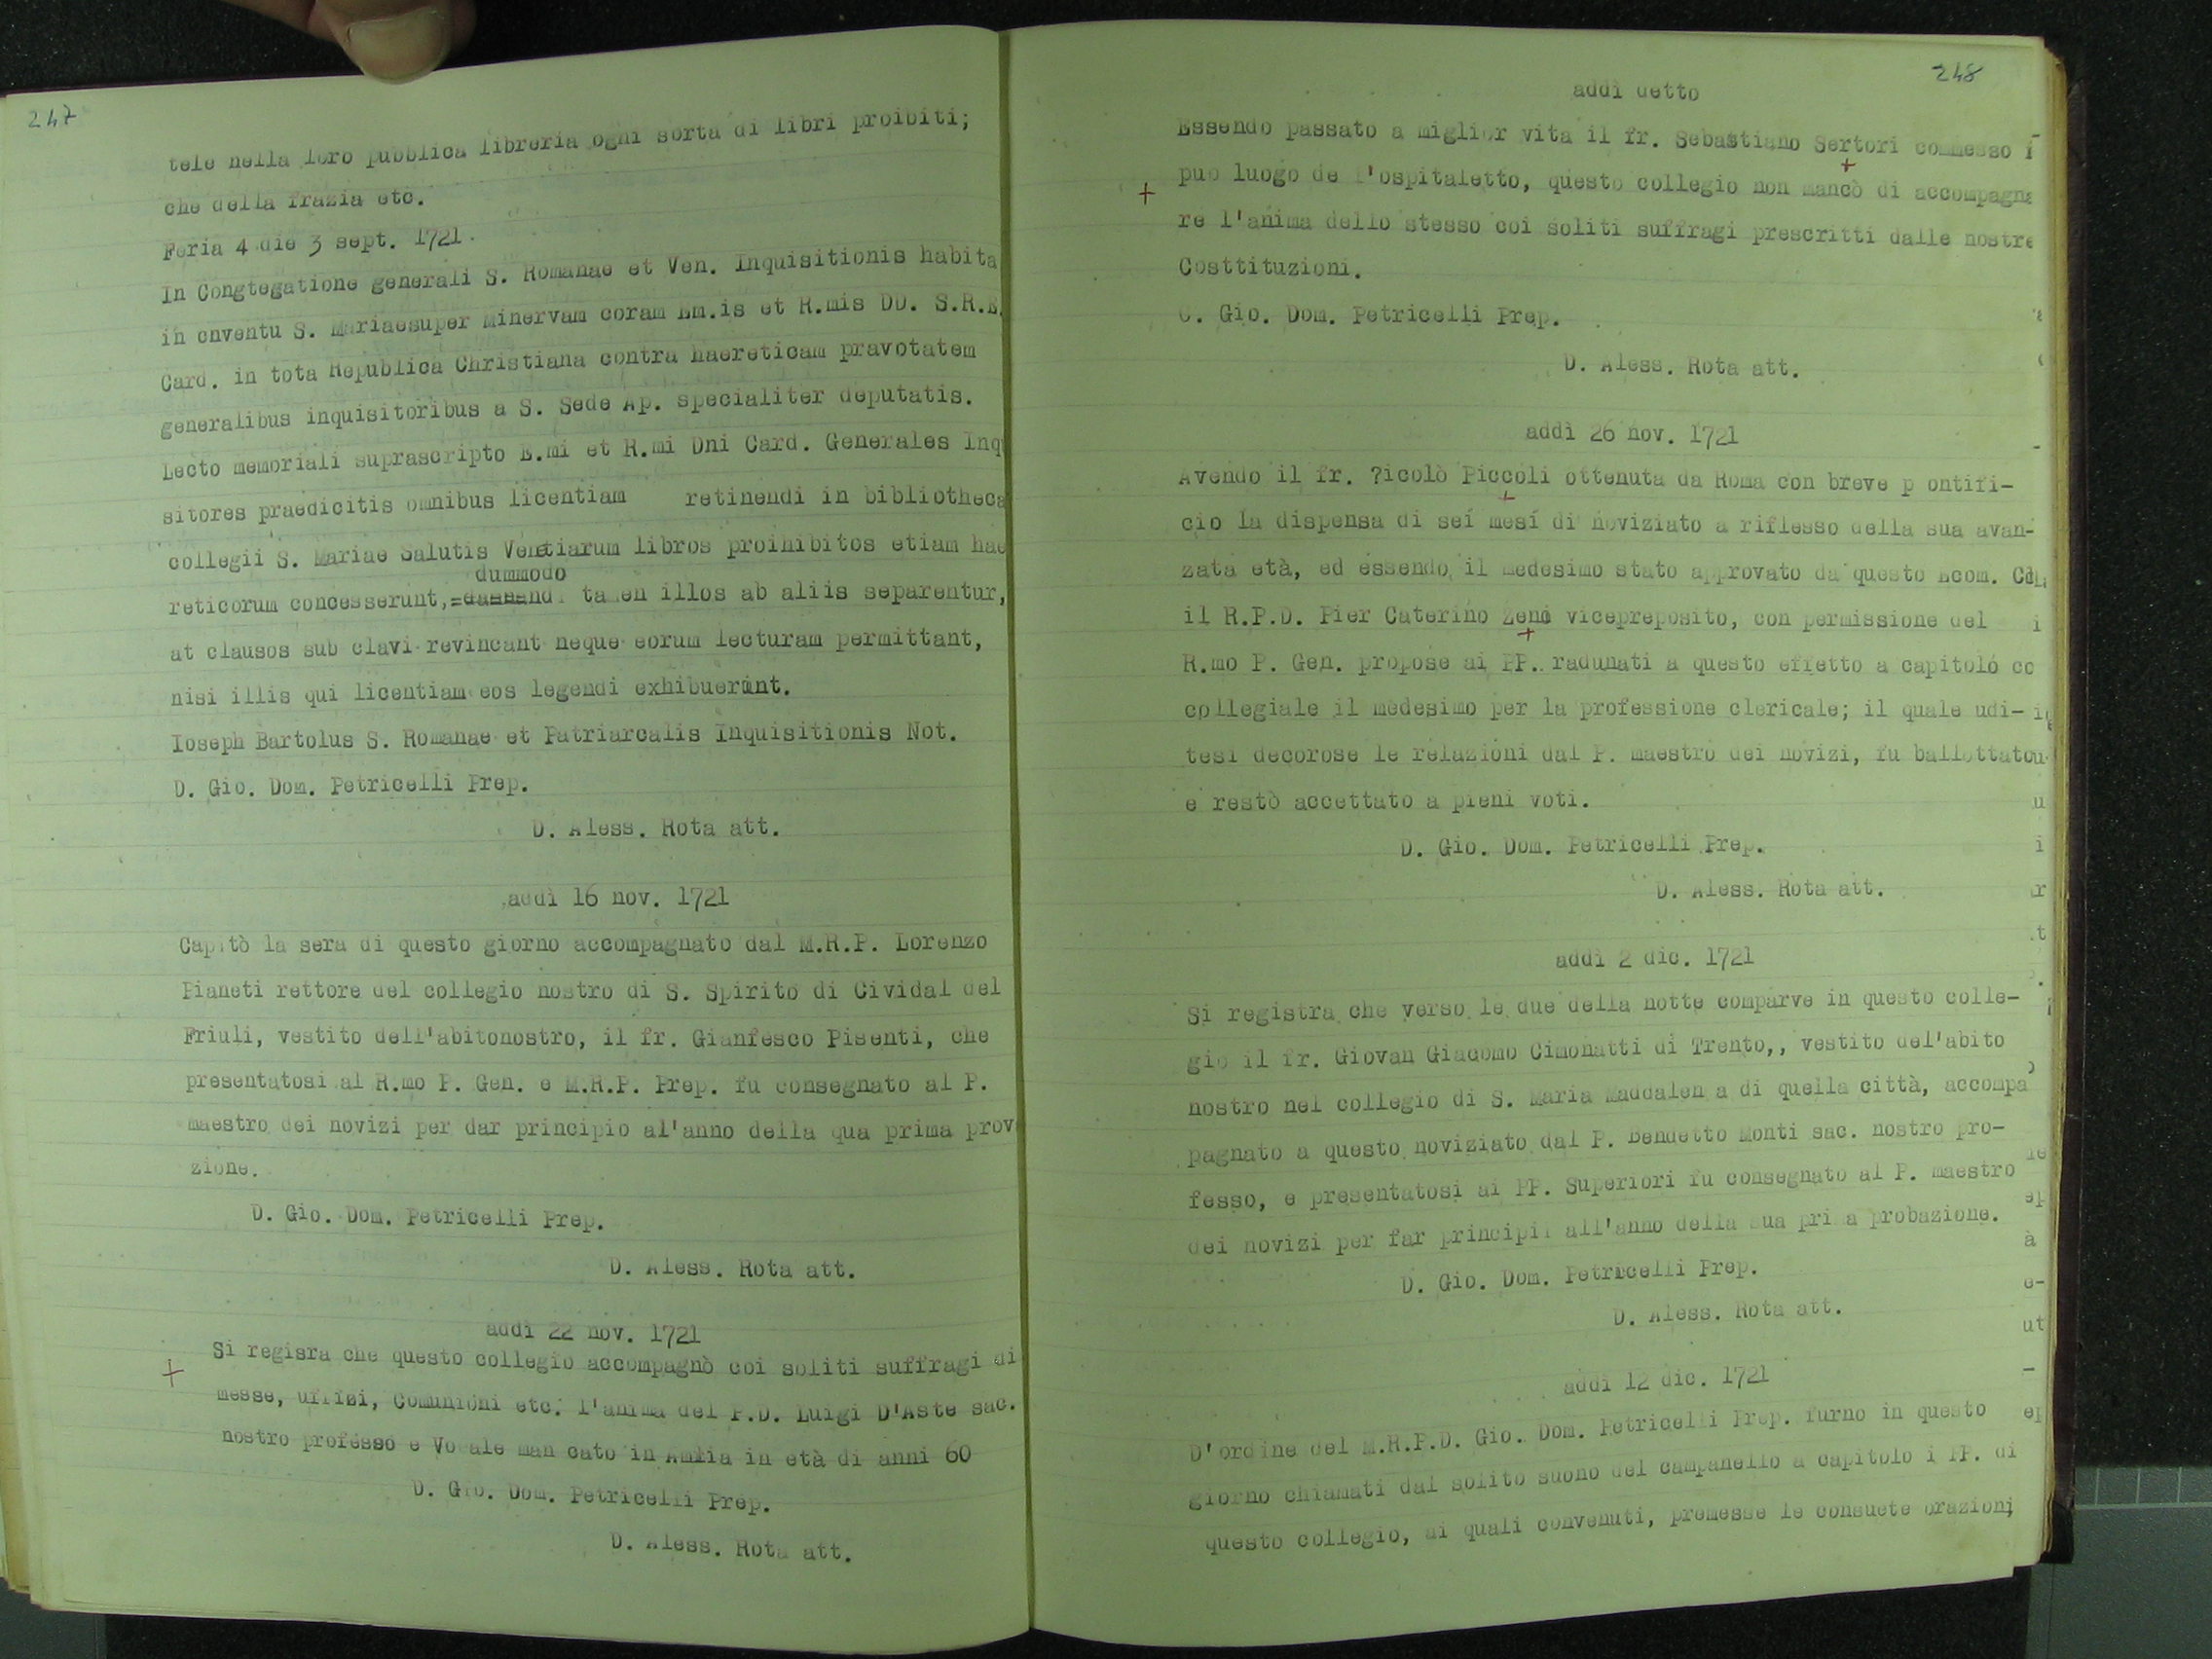 247
tele nella loro pubblica libreria ogni sorta di libri proibiti;
che della frazia etc.
Feria 4 die 3 sept. 1721.
In Congtegatione generali S. Romanae et Ven. Inquisitionis habita
in cnventu S. Mariaesuper Minervam coram Em.is et R.mis DD. S.R.E.
Card. in tota Republica Christiana contra haereticam pravotatem
generalibus inquisitoribus a S. Sede Ap. specialiter deputatis.
Lecto memoriali suprascripto E.mi et R.mi Dni Card. Generales Inqu
sitores praedicitis omnibus licentiam retinendi in bibliotheca
collegii S. Mariae Salutis Venetiarum libros proihibitos etiam hae
dummodo
reticorum concesserunt, tamen illos ab aliis separentur,
at clausos sub clavi revincant neque eorum lecturam permittant,
nisi illis qui licentiam eos legendi exhibuerint.
Ioseph Bartolus S. Romanae et Patriarcalis Inquisitionis Not.
D. Gio. Dom. Petricelli Prep.
D. Aless. Rota att.
addì 16 nov. 1721
Capitò la sera di questo giorno accompagnato dal M.R.P. Lorenzo
Pianeti rettore del collegio nostro di S. Spirito di Cividal del
Friuli, vestito dell'abitonostro, il fr. Gianfesco Pisenti, che
presentatosi al R.mo P. Gen. e M.R.P. Prep. fu consegnato al P.
maestro dei novizi per dar principio al'anno della qua prima prov
zione.
D. Gio. Dom. Petricelli Prep.
D. Aless. Rota att.
addì 22 nov. 1721
+ Si regisra che questo collegio accompagnò coi soliti suffragi di
messe, uffizi, Comunioni etc. l'anima del P.D. Luigi D'Aste sac.
nostro professo e Vocale man cato in Amelia in età di anni 60
D. Gio. Dom. Petricelli Prep.
D. Aless. Rota att.
248
addì detto
Essendo passato a miglior vita il fr. Sebastiano Sertori commesso i
+ puo luogo de l'ospitaletto, questo collegio non mancò di accompagna
re l'anima dello stesso coi soliti suffragi prescritti dalle nostre
Costtituzioni.
C. Gio. Dom. Petricelli Prep.
D. Aless. Rota att.
addì 26 nov. 1721
Avendo il fr. ?icolò Piccoli ottenuta da Roma con breve p ontifi-
cio la dispensa di sei mesi di noviziato a riflesso della sua avan-
zata età, ed essendo il medesimo stato approvato da questo Ecom. Col
il R.P.D. Pier Caterino Zeno vicepreposito, con permissione del
R.mo P. Gen. propose ai PP. radunati a questo effetto a capitolo co
collegiale il medesimo per la professione clericale; il quale udi-
tesi decorose le relazioni dal P. maestro dei novizi, fu ballottato
e restò accettato a pieni voti.
D. Gio. Dom. Petricelli Prep.
D. Aless. Rota att.
addì 2 dic. 1721
Si registra che verso le due della notte comparve in questo colle-
gio il fr. Giovan Giacomo Cimonatti di Trento,, vestito del'abito
nostro nel collegio di S. Maria Maddalen a di quella città, accompa
pagnato a questo noviziato dal P. Bendetto Monti sac. nostro pro-
fesso, e presentatosi ai PP. Superiori fu consegnato al P. maestro
dei novizi per far principii all'anno della sua prima probazione.
D. Gio. Dom. Petricelli Prep.
D. Aless. Rota att.
addì 12 dic. 1721
D'ordine del M.R.P.D. Gio. Dom. Petricelli Prep. furno in questo
giorno chiamati dal solito suono del campanello a capitolo i PP. di
questo collegio, ai quali convenuti, premesse le consuete orazioni